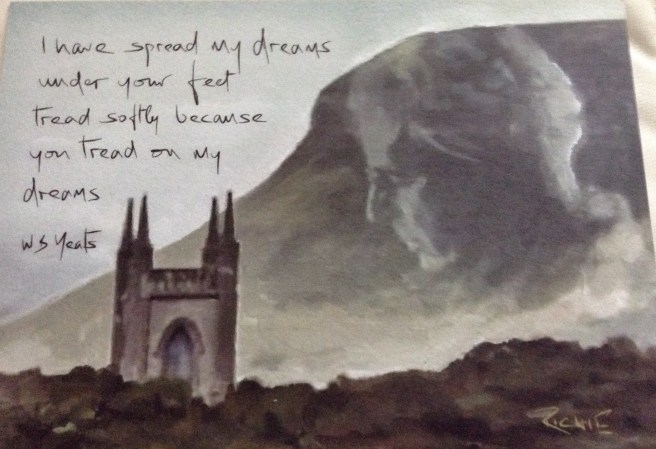 I have spread my dreams
under your feet
tread softly because
you tread on my
dreams
WB Yeats
RICHIE